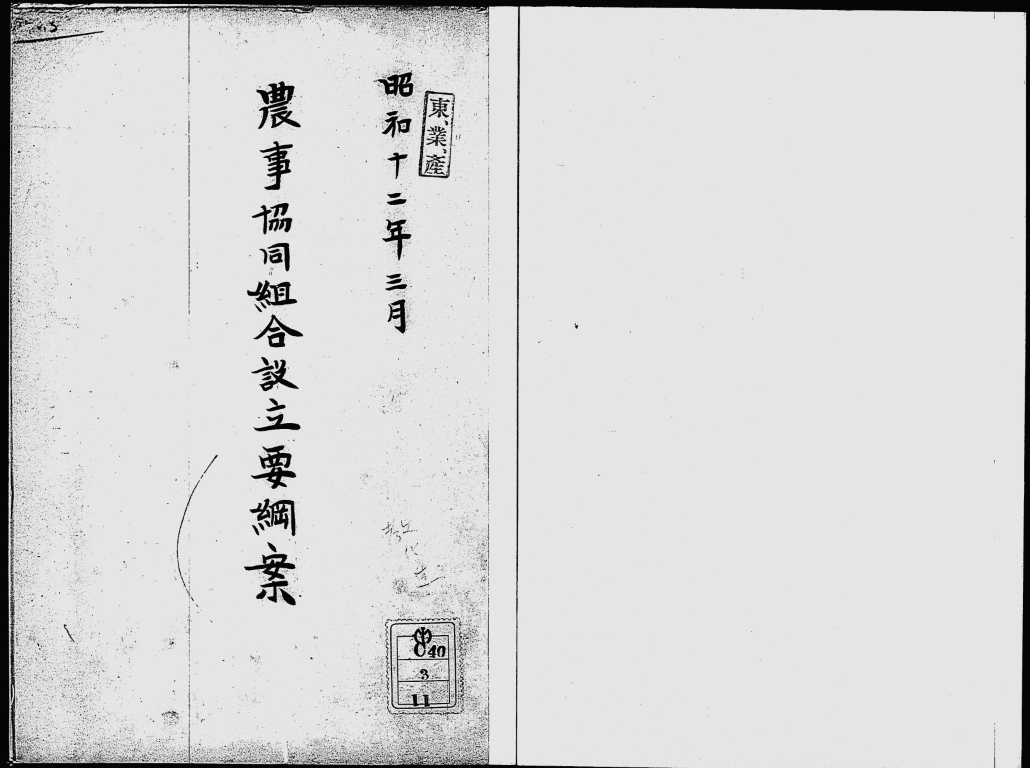 東、業、産
昭和十二年三月
農事協同組合設立要綱案
40
3
11